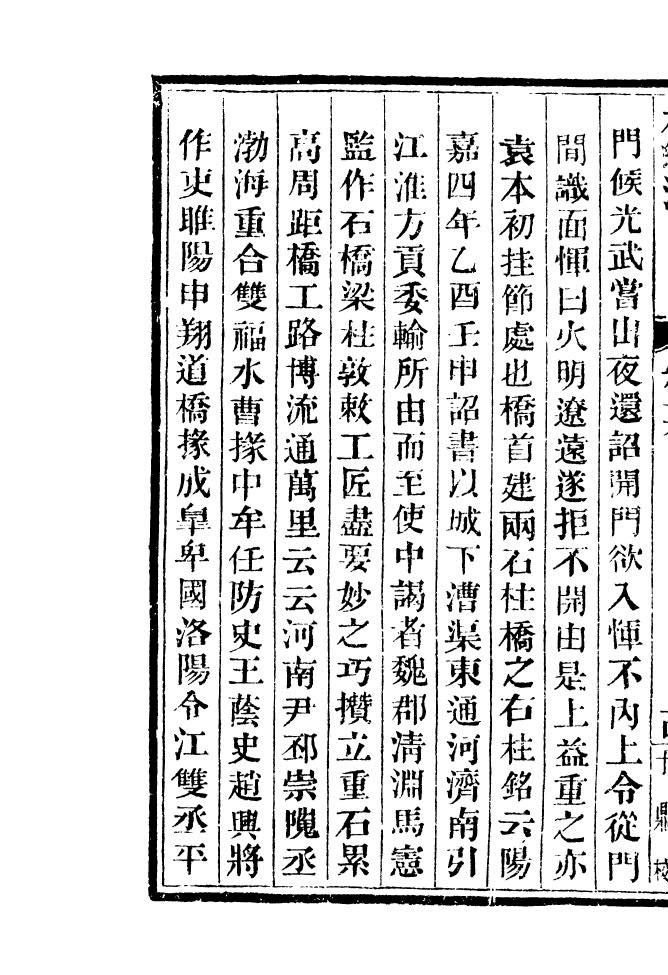 門候光武嘗出夜還詔開門欲入惲不內上令從門
間識面惲曰火明遼遠遂拒不開由是上益重之亦
袁本初挂節處也橋首建兩石柱橋之右柱銘云陽
嘉四年乙酉壬申詔書以城下漕渠東通河濟南引
江淮方貢委輸所由而至使中謁者魏郡清淵馬憲
監作石橋梁柱敦敕工匠盡要妙之巧攢立重石累
高周距橋工路博流通萬里云云河南尹邳崇隗丞
渤海重合雙福水曹掾中牟任防史王蔭史趙興將
作吏睢陽申翔道橋掾成皐卑國洛陽令江雙丞平